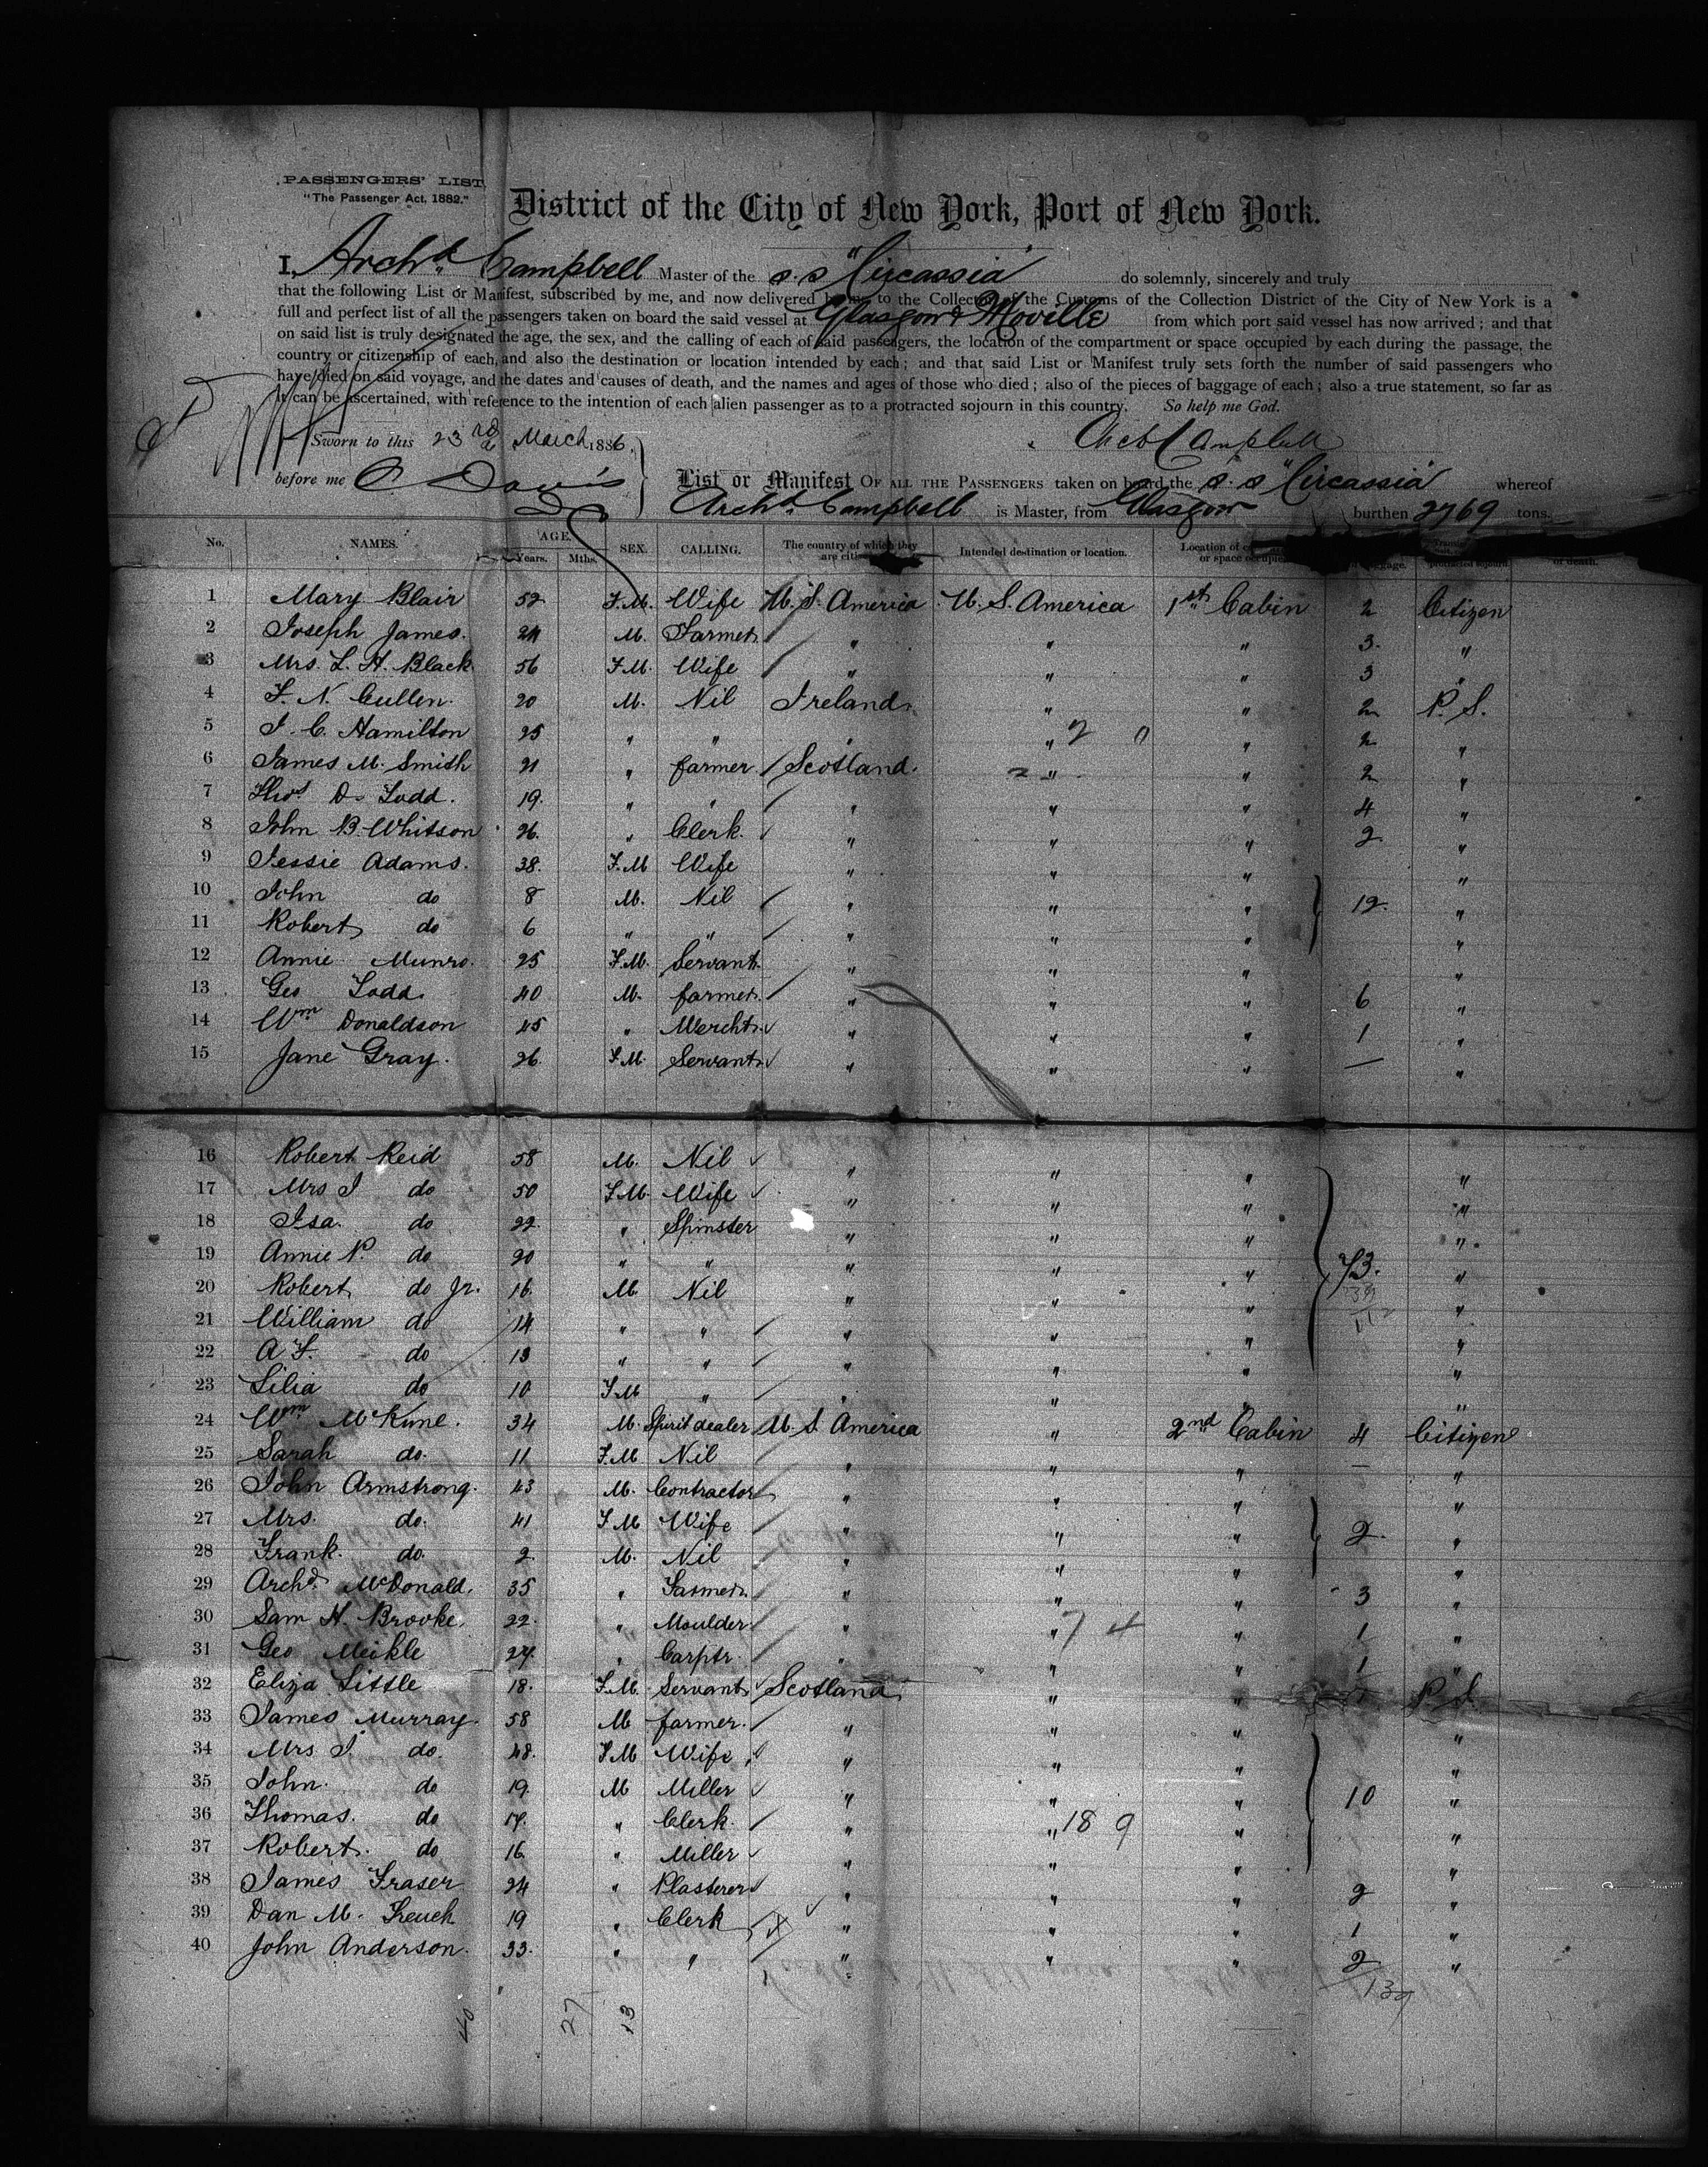 PASSENGERS' LIST.
"The Passenger Act, 1882."
District of the City of New York, Port of New York.
I, Archd. Campbell Master of the s.s "Circassia" do solemnly, sincerely and truly
that the following List or Manifest, subscribed by me, and now delivered by me to the Collector of the Customs of the Collection District of the City of New York is a
full and perfect list of all the passengers taken on board the said vessel at Glasgow & Moville from which port said vessel has now arrived; and that
on said list is truly designated the age, the sex, and the calling of each of said passengers, the location of the compartment or space occupied by each during the passage, the
country or citizenship of each, and also the destination or location intended by each; and that said List or Manifest truly sets forth the number of said passengers who
have died on said voyage, and the dates and causes of death, and the names and ages of those who died; also of the pieces of baggage of each; also a true statement, so far as
it can be ascertained, with reference to the intention of each alien passenger as to a protracted sojourn in this country. So help me God.
Sworn to this 23rd March 1886, Archd Campbell
before me C Davis
List or Manifest OF ALL THE PASSENGERS taken on board the s.s "Circassia" whereof
Archd. Campbell is Master, from Glasgow burthen 2769 tons.
No. NAMES. AGE. Years. Mths. SEX. CALLING. The country of which they are Intended destination or location. Location of or space of death.
1 Mary Blair 52 F.M. Wife U.S. America U.S. America 1st Cabin 2 Citizen
2 Joseph James. 24 M. Farmer " " " 3. "
3 Mrs. L. H. Black 56 F.M. Wife " " " 3 "
4 F. N. Cullen. 20 M. Nil Ireland " " 2 P.S.
5 J. C. Hamilton 25 " " " " 2 0 " 2 "
6 James M. Smith 21 " farmer Scotland. 2 " " 2 "
7 Thos D. Todd. 19. " " " " " 4 "
8 John B. Whitson 26. " Clerk. " " " 2 "
9 Jessie Adams. 38. F.M Wife " " " "
10 John do 8 M. Nil " " " 12. "
11 Robert do 6 " " " " " "
12 Annie Munro. 25 F.M. Servant. " " " "
13 Geo Todd. 40 M. farmer. " " " 6 "
14 Wm Donaldson 45 " Mercht. " " " 1 "
15 Jane Gray. 26 F.M. Servant. " " " — "
16 Robert Reid 58 M. Nil " " " "
17 Mrs J do 50 F.M. Wife " " " "
18 Isa. do 22. " Spinster " " " "
19 Annie P. do 20 " " " " " 73. "
20 Robert do Jr. 16. M. Nil " " " 39 "
21 William do 14 " " " " " 112 "
22 A F. do 13 " " " " " "
23 Lilia do 10 F.M " " " " "
24 Wm McKune. 34 M Spirit dealer U.S. America " 2nd Cabin 4 Citizen
25 Sarah do. 11 F.M Nil " " " — "
26 John Armstrong. 43 M. Contractor " " " "
27 Mrs. do. 41 F.M Wife " " " 2. "
28 Frank. do. 2. M. Nil " " " "
29 Archd. McDonald. 35 " Farmer. " " " 3 "
30 Sam H. Brooke. 22. " Moulder " " 7 4 " 1 "
31 Geo Meikle 27. " Carptr. " " " 1 "
32 Eliza Little 18. F.M. Servant Scotland " " P.S.
33 James Murray. 58 M farmer. " " " "
34 Mrs J. do. 48. F.M Wife " " " "
35 John. do 19. M Miller " " " 10 "
36 Thomas. do 17. " Clerk. " " 18 9 " "
37 Robert. do 16 " Miller " " " "
38 James Fraser 24 " Plasterer " " " 2 "
39 Dan M. French 19 " Clerk " " " 1 "
40 John Anderson. 33. " " " " " 2 "
139
40 27 13